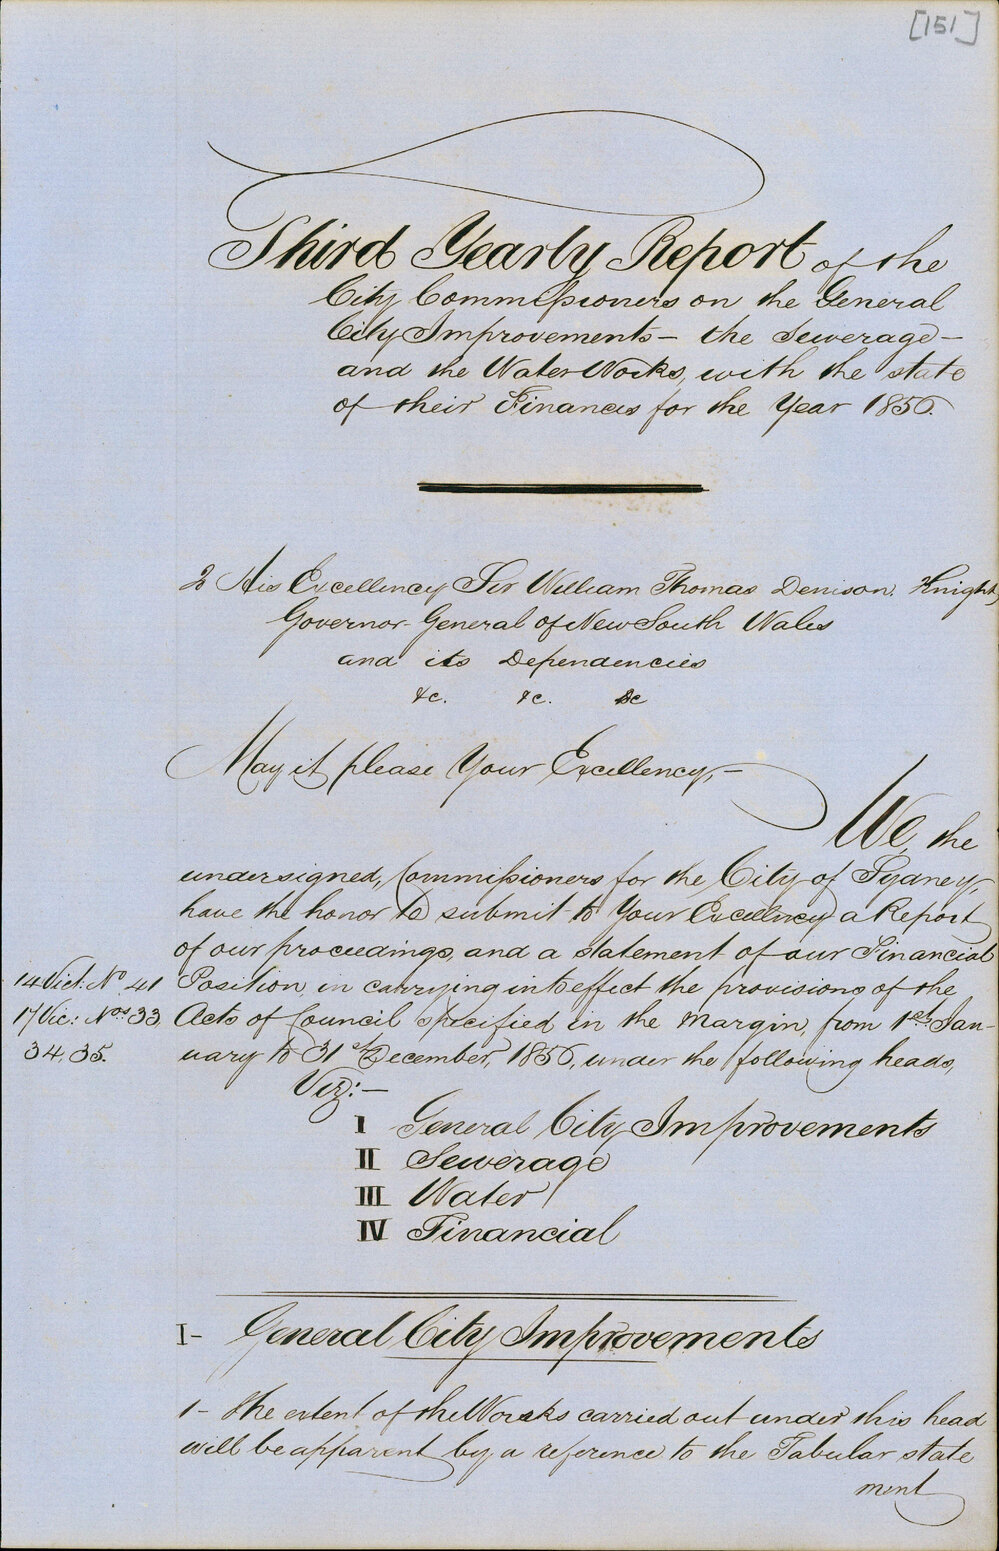 [151]
Third Yearly Report of the
City Commissioners on the General
City Improvements – the Sewerage –
and the Water Works, with the state
of their Finances for the Year 1856.
To His Excellency Sir William Thomas Denison, Knight,
Governor-General of New South Wales
and its Dependencies
&c. &c. &c
May it please Your Excellency, –
We, the
undersigned, Commissioners for the City of Sydney,
have the honor to submit to Your Excellency a Report
of our proceedings, and a statement of our Financial
14 Vict: No 41 Position, in carrying into effect the provisions of the
17 Vic: Nos 33, Acts of Council specified in the Margin, from 1st Jan-
34, 35. uary to 31st December, 1856, under the following heads,
Viz: –
I General City Improvements
II Sewerage
III Water
IV Financial
I – General City Improvements
1 – The extent of the Works carried out under this head
will be apparent by a reference to the Tabular state
ment